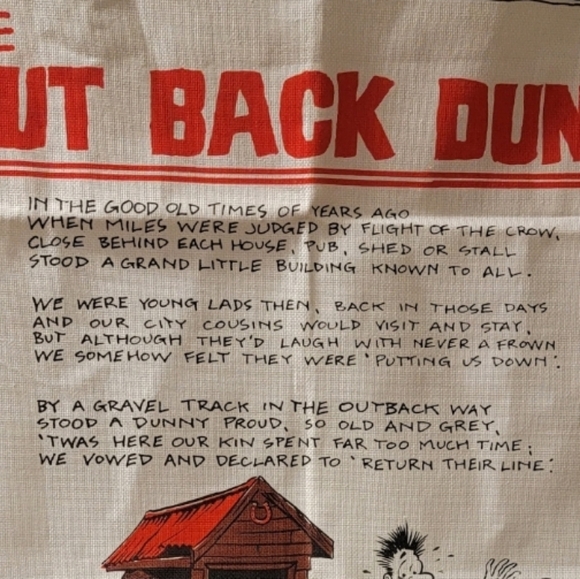 UT BACK DUN
IN THE GOOD OLD TIMES OF YEARS AGO
WHEN MILES WERE JUDGED BY FLIGHT OF THE CROW,
CLOSE BEHIND EACH HOUSE, PUB, SHED OR STALL
STOOD A GRAND LITTLE BUILDING KNOWN TO ALL.
WE WERE YOUNG LADS THEN, BACK IN THOSE DAYS
AND OUR CITY COUSINS WOULD VISIT AND STAY,
BUT ALTHOUGH THEY'D LAUGH WITH NEVER A FROWN
WE SOMEHOW FELT THEY WERE 'PUTTING US DOWN'.
BY A GRAVEL TRACK IN THE OUTBACK WAY
STOOD A DUNNY PROUD, SO OLD AND GREY,
'TWAS HERE OUR KIN SPENT FAR TOO MUCH TIME;
WE VOWED AND DECLARED TO 'RETURN THEIR LINE'.